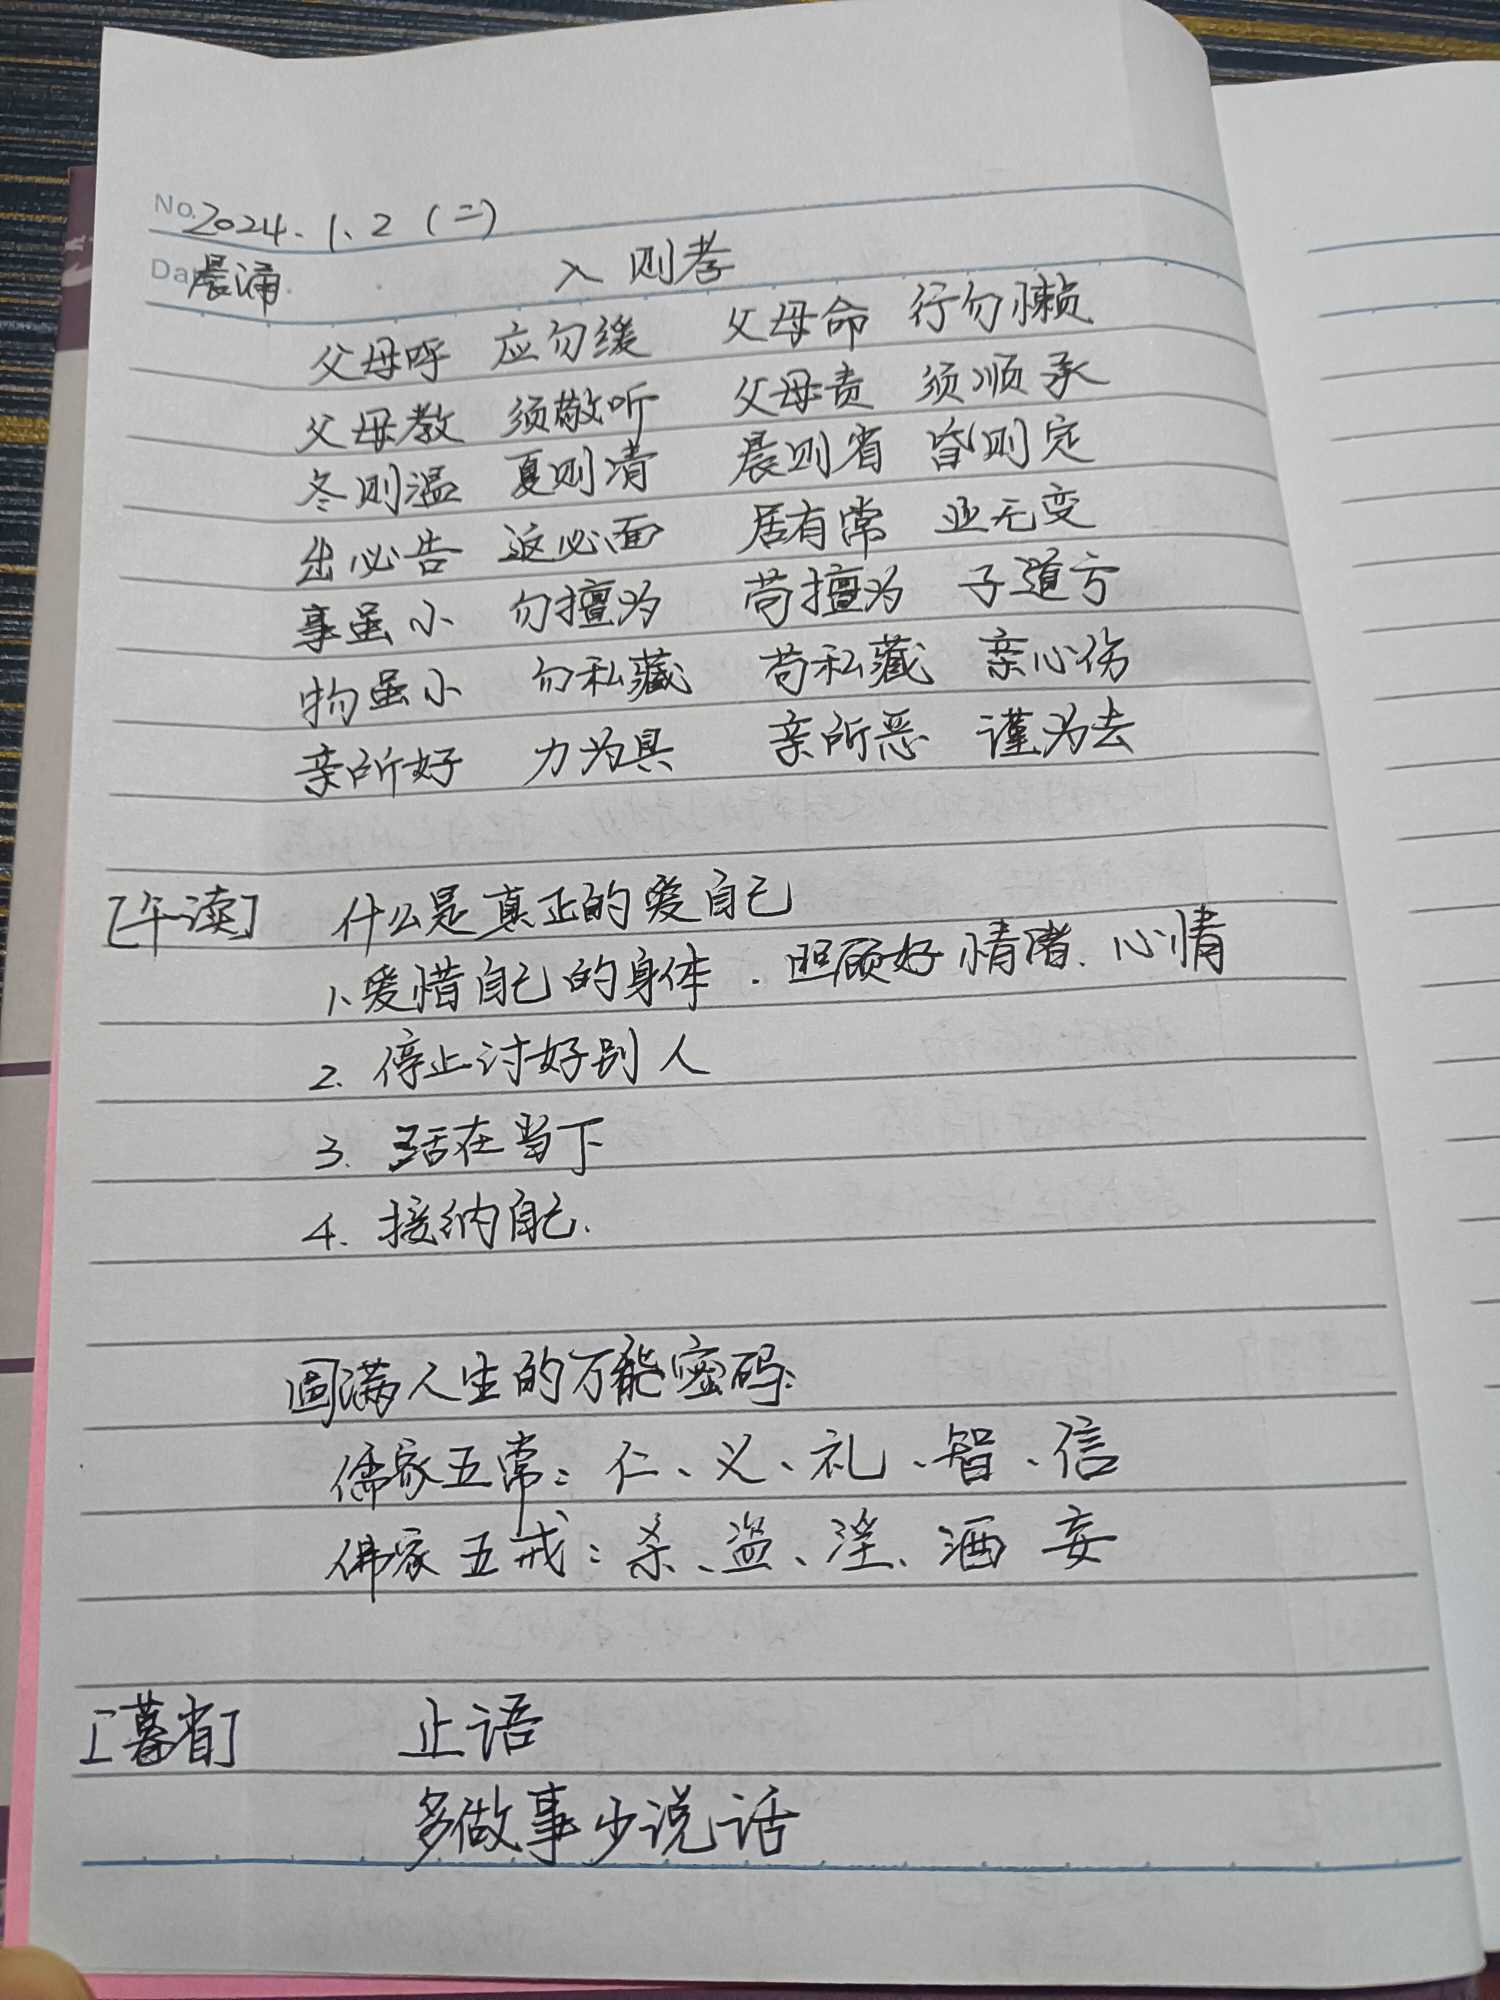 No. 2024.1.2(二)
Da 晨诵 入则孝
父母呼 应勿缓 父母命 行勿懒
父母教 须敬听 父母责 须顺承
冬则温 夏则清 晨则省 昏则定
出必告 返必面 居有常 业无变
事虽小 勿擅为 苟擅为 子道亏
物虽小 勿私藏 苟私藏 亲心伤
亲所好 力为具 亲所恶 谨为去
[午读] 什么是真正的爱自己
1、爱惜自己的身体.照顾好情绪、心情
2. 停止讨好别人
3. 活在当下
4. 接纳自己.
圆满人生的万能密码:
儒家五常:仁、义、礼、智、信
佛家五戒:杀、盗、淫、酒 妄
[暮省] 止语
多做事少说话